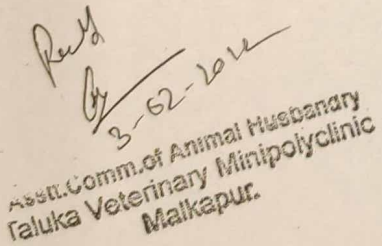 Recd
3-02-2022
Asstt.Comm.of Animal Husbandry
Taluka Veterinary Minipolyclinic
Malkapur.